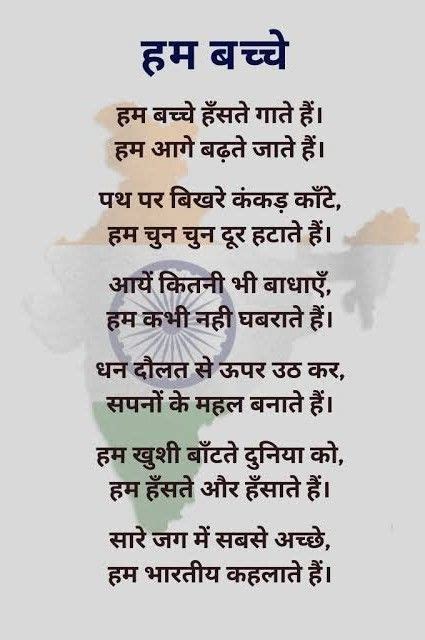 हम बच्चे
हम बच्चे हँसते गाते हैं।
हम आगे बढ़ते जाते हैं।
पथ पर बिखरे कंकड़ काँटे,
हम चुन चुन दूर हटाते हैं।
आयें कितनी भी बाधाएँ,
हम कभी नही घबराते हैं।
धन दौलत से ऊपर उठ कर,
सपनों के महल बनाते हैं।
हम खुशी बाँटते दुनिया को,
हम हँसते और हँसाते हैं।
सारे जग में सबसे अच्छे,
हम भारतीय कहलाते हैं।